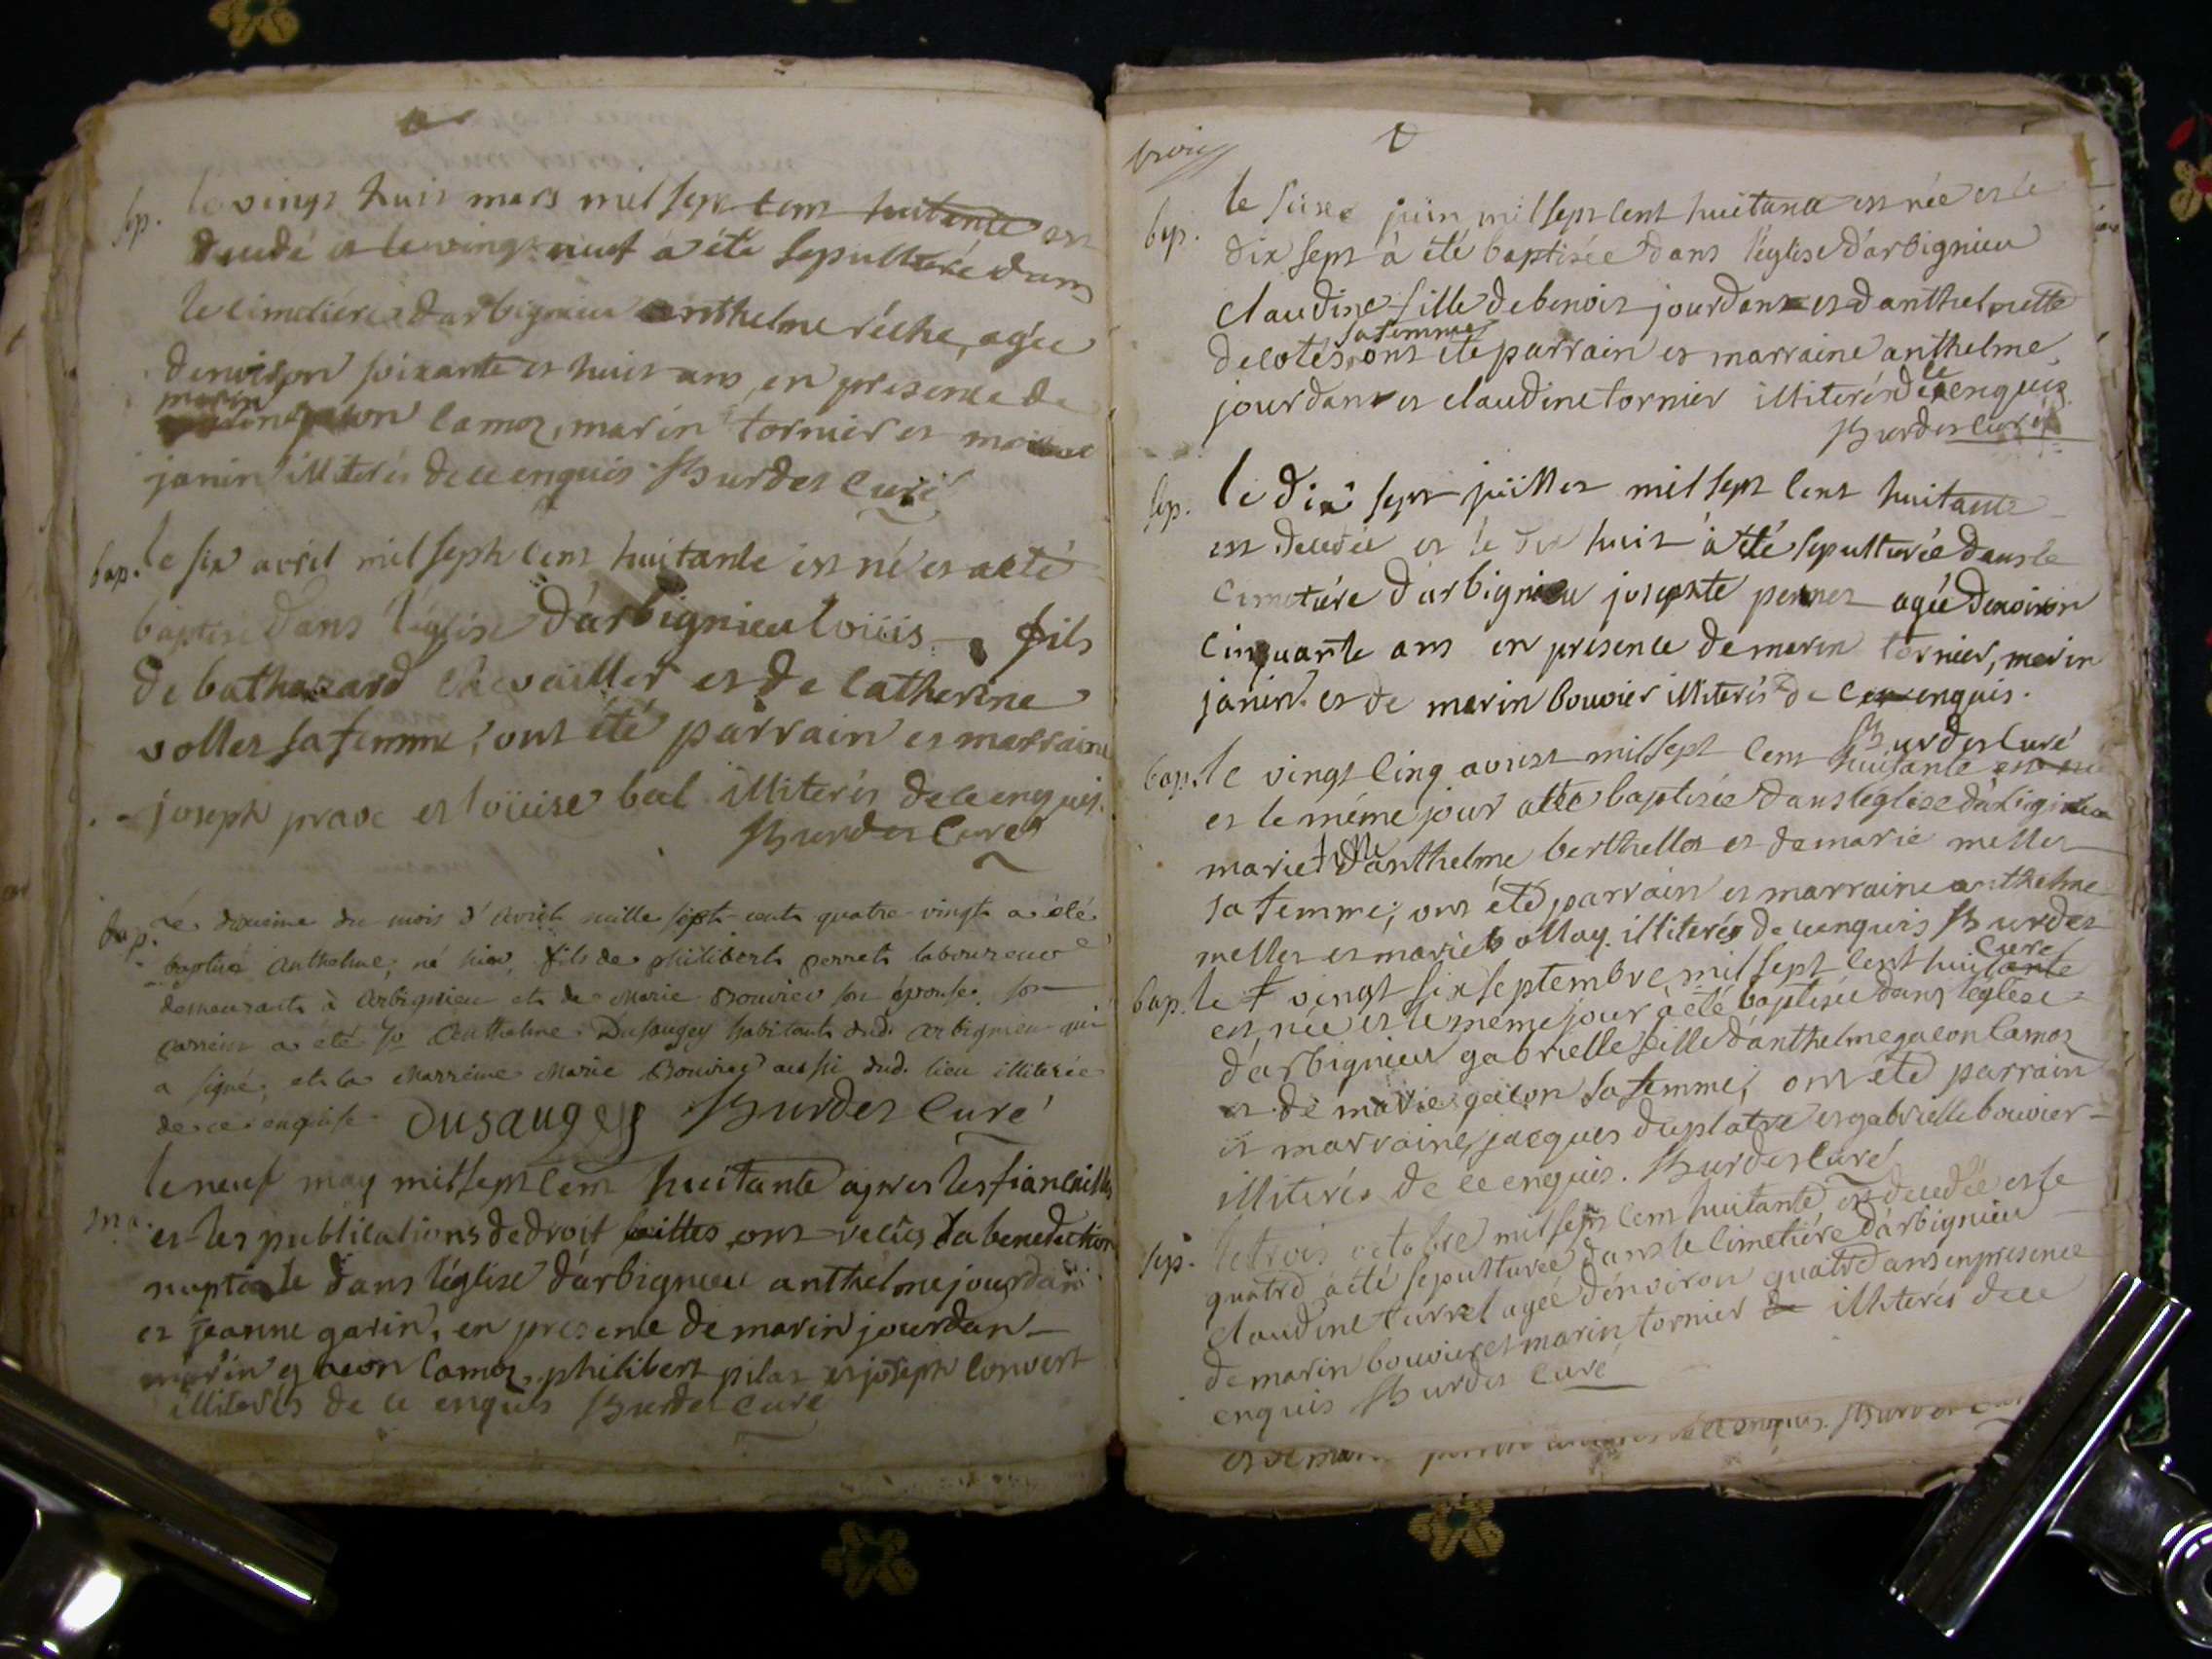 sep. le vingt huit mars mil sept cent huitante est
decedé et le vingt neuf a été sepulturé dans
le cimetière d'arbignieu anthelme réche, agée
d'environ soixante et huit ans, en presence de
marin
gacon camoz, marin tornier et
janin illiterés de ce enquis Burdet curé
bap. le six avril mil sept cent huitante est né et a eté
baptisé dans l'église d'arbignieu loüis fils
de bathazard chevaillier et de catherine
vollet sa femme, ont été parrain et marraine
joseph prave et loüise bal illiterés de ce enquis.
Burdet curé
bap. Le dixieme du mois d'Avril mille sept-cent quatre-vingt a été
baptisé Anthelme, né hier, fils de philibert perret laboureur
demeurant à Arbignieu et de Marie Bouvier son épouse. son
parrein a été Sr Anthelme Dusaugey habitant dud. Arbignieu qui
a signé, et la Marreine Marie Bouvier aussi dud. lieu illiterée
de ce enquise Dusaugey Burdet curé
ma. le neuf may mil sept cent huitante apres les fiancailles
et les publications de droit faittes, ont recus la benediction
nuptiale dans l'église d'arbignieu anthelme jourdan
et jeanne garin, en presence de marin jourdan
marin gacon camoz, philibert pilat et joseph convert
illiterés de ce enquis Burdet curé
bap. le seize juin mil sept cent huitante est née et le
dix sept à été baptisée dans l'église d'arbignieu
claudine fille de benoit jourdan et d'anthelmette
sa femme
decotes, ont eté parrain et marraine anthelme
jourdan et claudine tornier illiterés de ce enquis
Burdet curé
sep. le dix sept juillet mil sept cent huitante
est decedée et le dix huit à été sepulturée dans le
cimetiére d'arbignieu josephte pernet agée denviron
cinquante ans en presence de marin tornier, marin
janin et de marin bouvier illiterés de ce enquis.
Burdet curé
bap. le vingt cinq aoust mil sept cent huitante est née
et le même jour a eté baptisée dans l'église d'arbignieu
marie fille d'anthelme berthellet et de marie mellet
sa femme, ont été parrain et marraine anthelme
mellet et marie bollay. illiterés de ce enquis Burdet
curé
bap. le vingt six septembre mil sept cent huitante
est née et le même jour à été baptisée dans l'église
d'arbignieu gabrielle fille d'anthelme gacon camoz
et de marie gacon sa femme, ont été parrain
et marraine jacques duplatre et gabrielle bouvier
illiterés de ce enquis. Burdet curé
sep. le trois octobre mil sept cent huitante est decedée et le
quatre à été sepulturée dans le cimetiére d'arbignieu
claudine turrel agée d'environ quatre ans en presence
de marin bouvier et marin tornier illiterés de ce
enquis Burdet curé